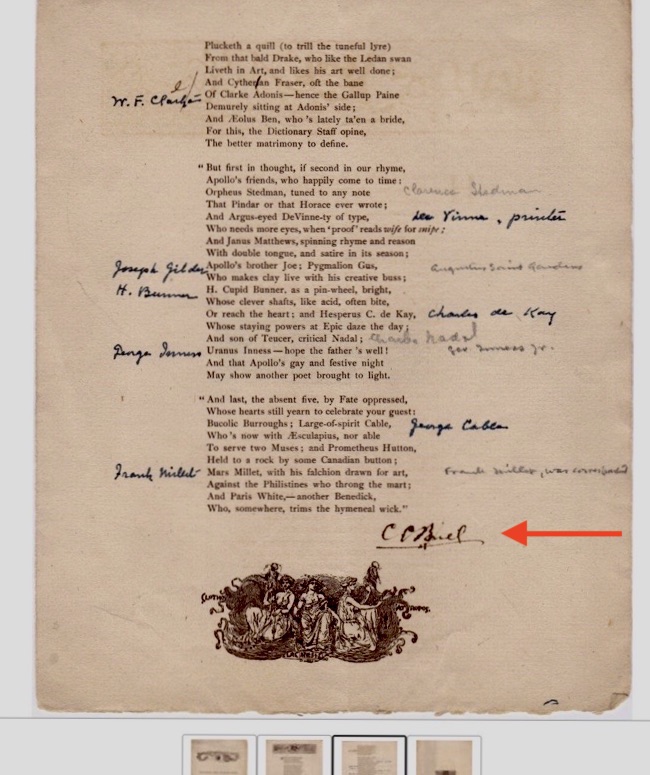 Plucketh a quill (to trill the tuneful lyre)
From that bald Drake, who like the Ledan swan
Liveth in Art, and likes his art well done;
And Cytheran Fraser, oft the bane
W. F. Clarke Of Clarke Adonis—hence the Gallup Paine
Demurely sitting at Adonis' side;
And Æolus Ben, who 's lately ta'en a bride,
For this, the Dictionary Staff opine,
The better matrimony to define.
"But first in thought, if second in our rhyme,
Apollo's friends, who happily come to time:
Orpheus Stedman, tuned to any note Clarence Stedman
That Pindar or that Horace ever wrote;
And Argus-eyed DeVinne-ty of type, Dee Vinne, printer
Who needs more eyes, when 'proof' reads wife for snipe;
And Janus Matthews, spinning rhyme and reason
With double tongue, and satire in its season;
Joseph Gilder Apollo's brother Joe; Pygmalion Gus, Augustus Saint Gaudens
Who makes clay live with his creative buss;
H. Bunner H. Cupid Bunner, as a pin-wheel, bright,
Whose clever shafts, like acid, often bite,
Or reach the heart; and Hesperus C. de Kay, Charles de Kay
Whose staying powers at Epic daze the day;
And son of Teucer, critical Nadal; Charles Nadal
George Inness Uranus Inness—hope the father 's well! Geo. Inness Jr.
And that Apollo's gay and festive night
May show another poet brought to light.
"And last, the absent five, by Fate oppressed,
Whose hearts still yearn to celebrate your guest:
Bucolic Burroughs; Large-of-spirit Cable, George Cable
Who's now with Æsculapius, nor able
To serve two Muses; and Prometheus Hutton,
Held to a rock by some Canadian button;
Frank Millet Mars Millet, with his falchion drawn for art, Frank Millet, was
Against the Philistines who throng the mart;
And Paris White,—another Benedick,
Who, somewhere, trims the hymeneal wick."
C C Buel
CLOTHO ATROPOS
LACHESIS